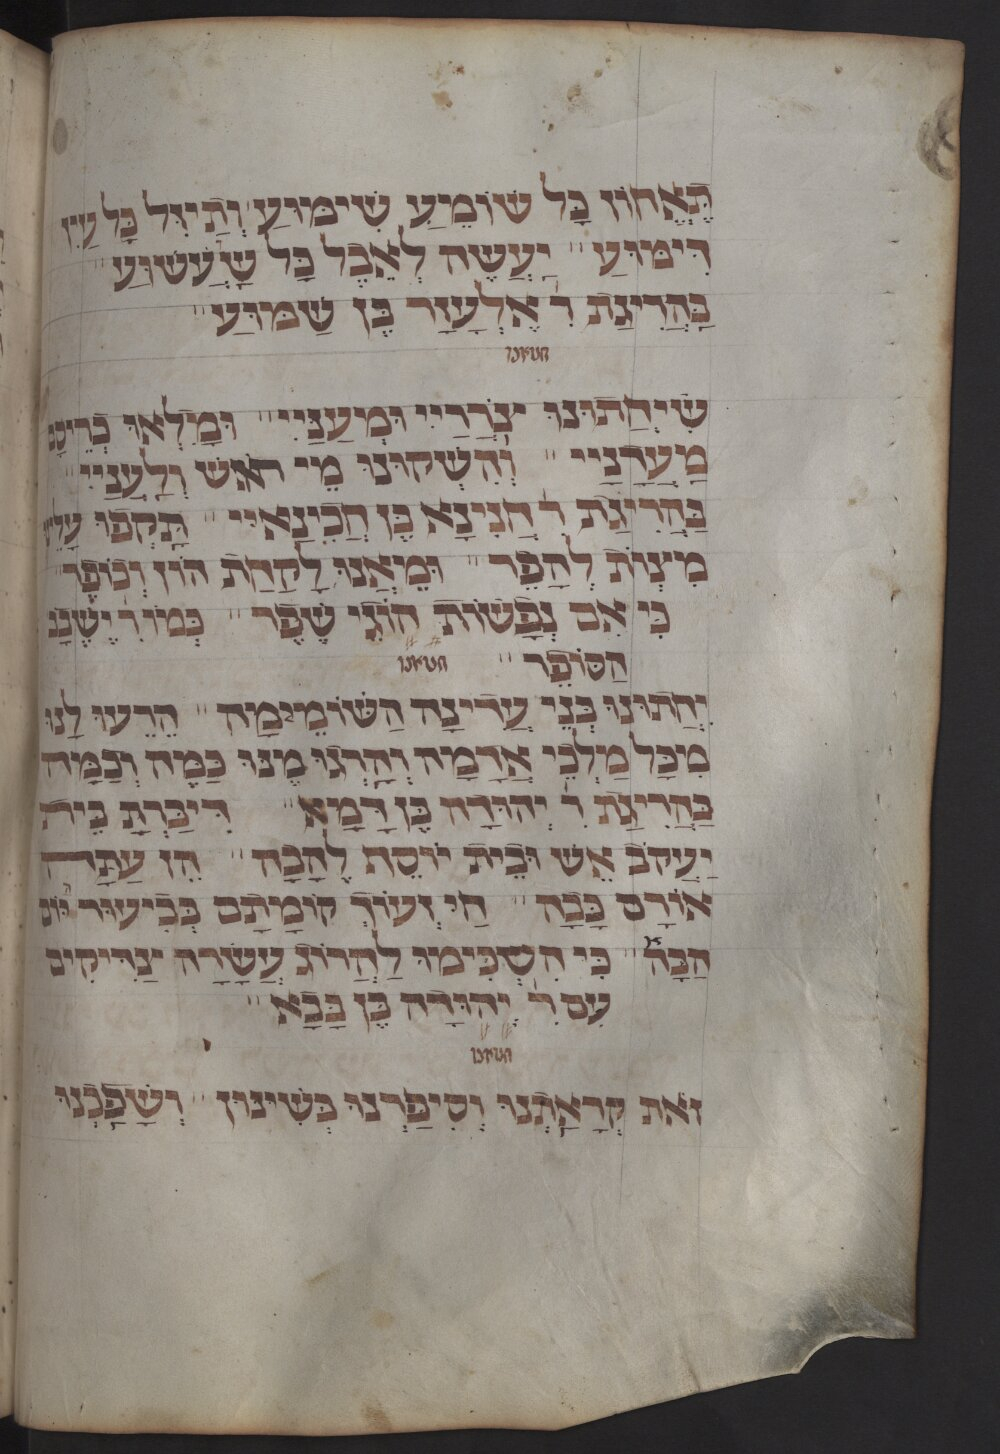 תֶּאֱחוֹז כָּל שׁוֹמֵעַ שִׁימּוּעַ וְתִיזַּל כָּל עַיִן
דִּימּוּעַ " יֵעָשֶׂה לְאֵבֶל כָּל שַׁעֲשׁוּעַ "
בַּהֲרִיגַת ר' אֶלְעָזָר בֶּן שַׁמּוּעַ "
חטאנו
שִׁיחֲתוּנוּ צוֹרְרַיי וּמְעַנַּיי " וּמָלְאוּ כְרֵיסָם
מֵעֲדָנַיי " וְהִשְׁקוּנוּ מֵי רֹאשׁ וְלַעֲנַיי "
בַּהֲרִיגַת ר' חֲנִינָא בֶּן חֲכִינַאיי " תָּקְפוּ עָלֵינוּ
מִצְוֹת לְהָפֵר " וּמֵאֲנוּ לָקַחַת הוֹן וְכוֹפֶר "
כִּי אִם נְפָשׁוֹת הוֹגֵי שֶׁפֶר " כְּמוֹ ר' יֶשֶׁבָב
הַסּוֹפֵר " חטאנו
יְחַתּוּנוּ בְּנֵי עֲדִינָה הַשּׁוֹמֵימָה " הֵרֵעוּ לָנוּ
מִכָּל מַלְכֵי אֲדָמָה וְהָרְגוּ מֶנּוּ כַּמָּה וְכַמָּה
בַּהֲרִיגַת ר' יְהוּדָה בֶּן דָּמָא " דִּיבַּרְתָּ בֵּית
יַעֲקֹב אֵשׁ וּבֵית יוֹסֵף לֶהָבָה " הֵן עַתָּה
אוּרָם כָּבָה " חַי זְעוֹךְ קוֹמָתָם בְּבִיעוּר יוֹם
הַבָּא " כִּי הִשְׁכִּימוּ לַהֲרוֹג עֲשָׂרָה צַדִּיקִים
עִם ר' יְהוּדָה בֶּן בָּבָא "
חטאנו
זֹאת קְרָאָתְנוּ וְסִיפַּרְנוּ בְּשִׁינּוּן " וְשָׁפַכְנוּ